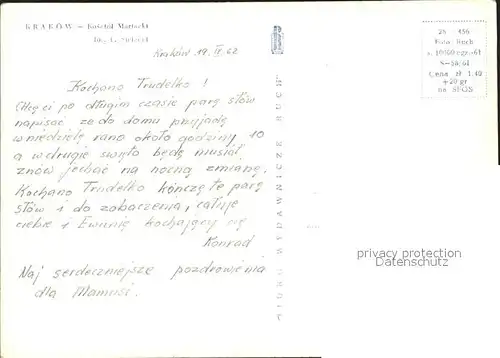 KRAKÓW — Kościół Mariacki
fot.
Kraków 19. IV. 62
Kochano Trudelko !
Chcę ci po długim czasie parę słów
napisać że do domu przyjadę
w niedzielę rano około godziny 10
a w drugie swięto będę musiał
znów jechać na nocną zmianę.
Kochano Trudelko kończę te parę
słów i do zobaczenia, całuje
ciebie i Ewunię kochający się
Konrad
Naj serdeczniejsze pozdrowienia
dla Mamusi.
BIURO WYDAWNICZE RUCH
Cena zł 1.40
+20 gr
na SFOS
privacy protection
Datenschutz